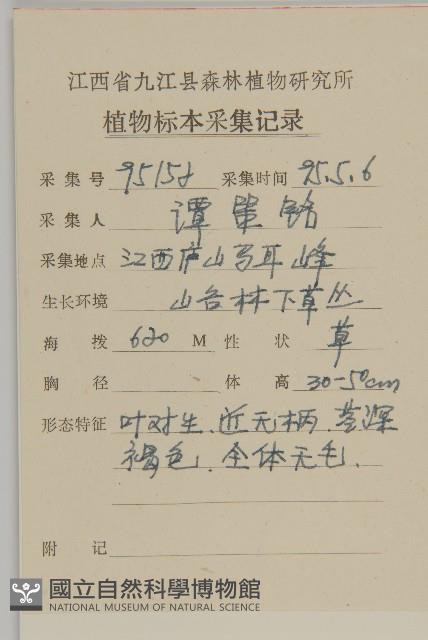 江西省九江县森林植物研究所
植物标本采集记录
采集号 95158 采集时间 95.5.6
采集人 谭策铭
采集地点 江西庐山马耳峰
生长环境 山谷林下草丛
海拨 620 M 性状 草
胸径 体高 30-50cm
形态特征 叶对生.近无柄.花深
褐色.全体无毛.
附记
國立自然科學博物館
NATIONAL MUSEUM OF NATURAL SCIENCE